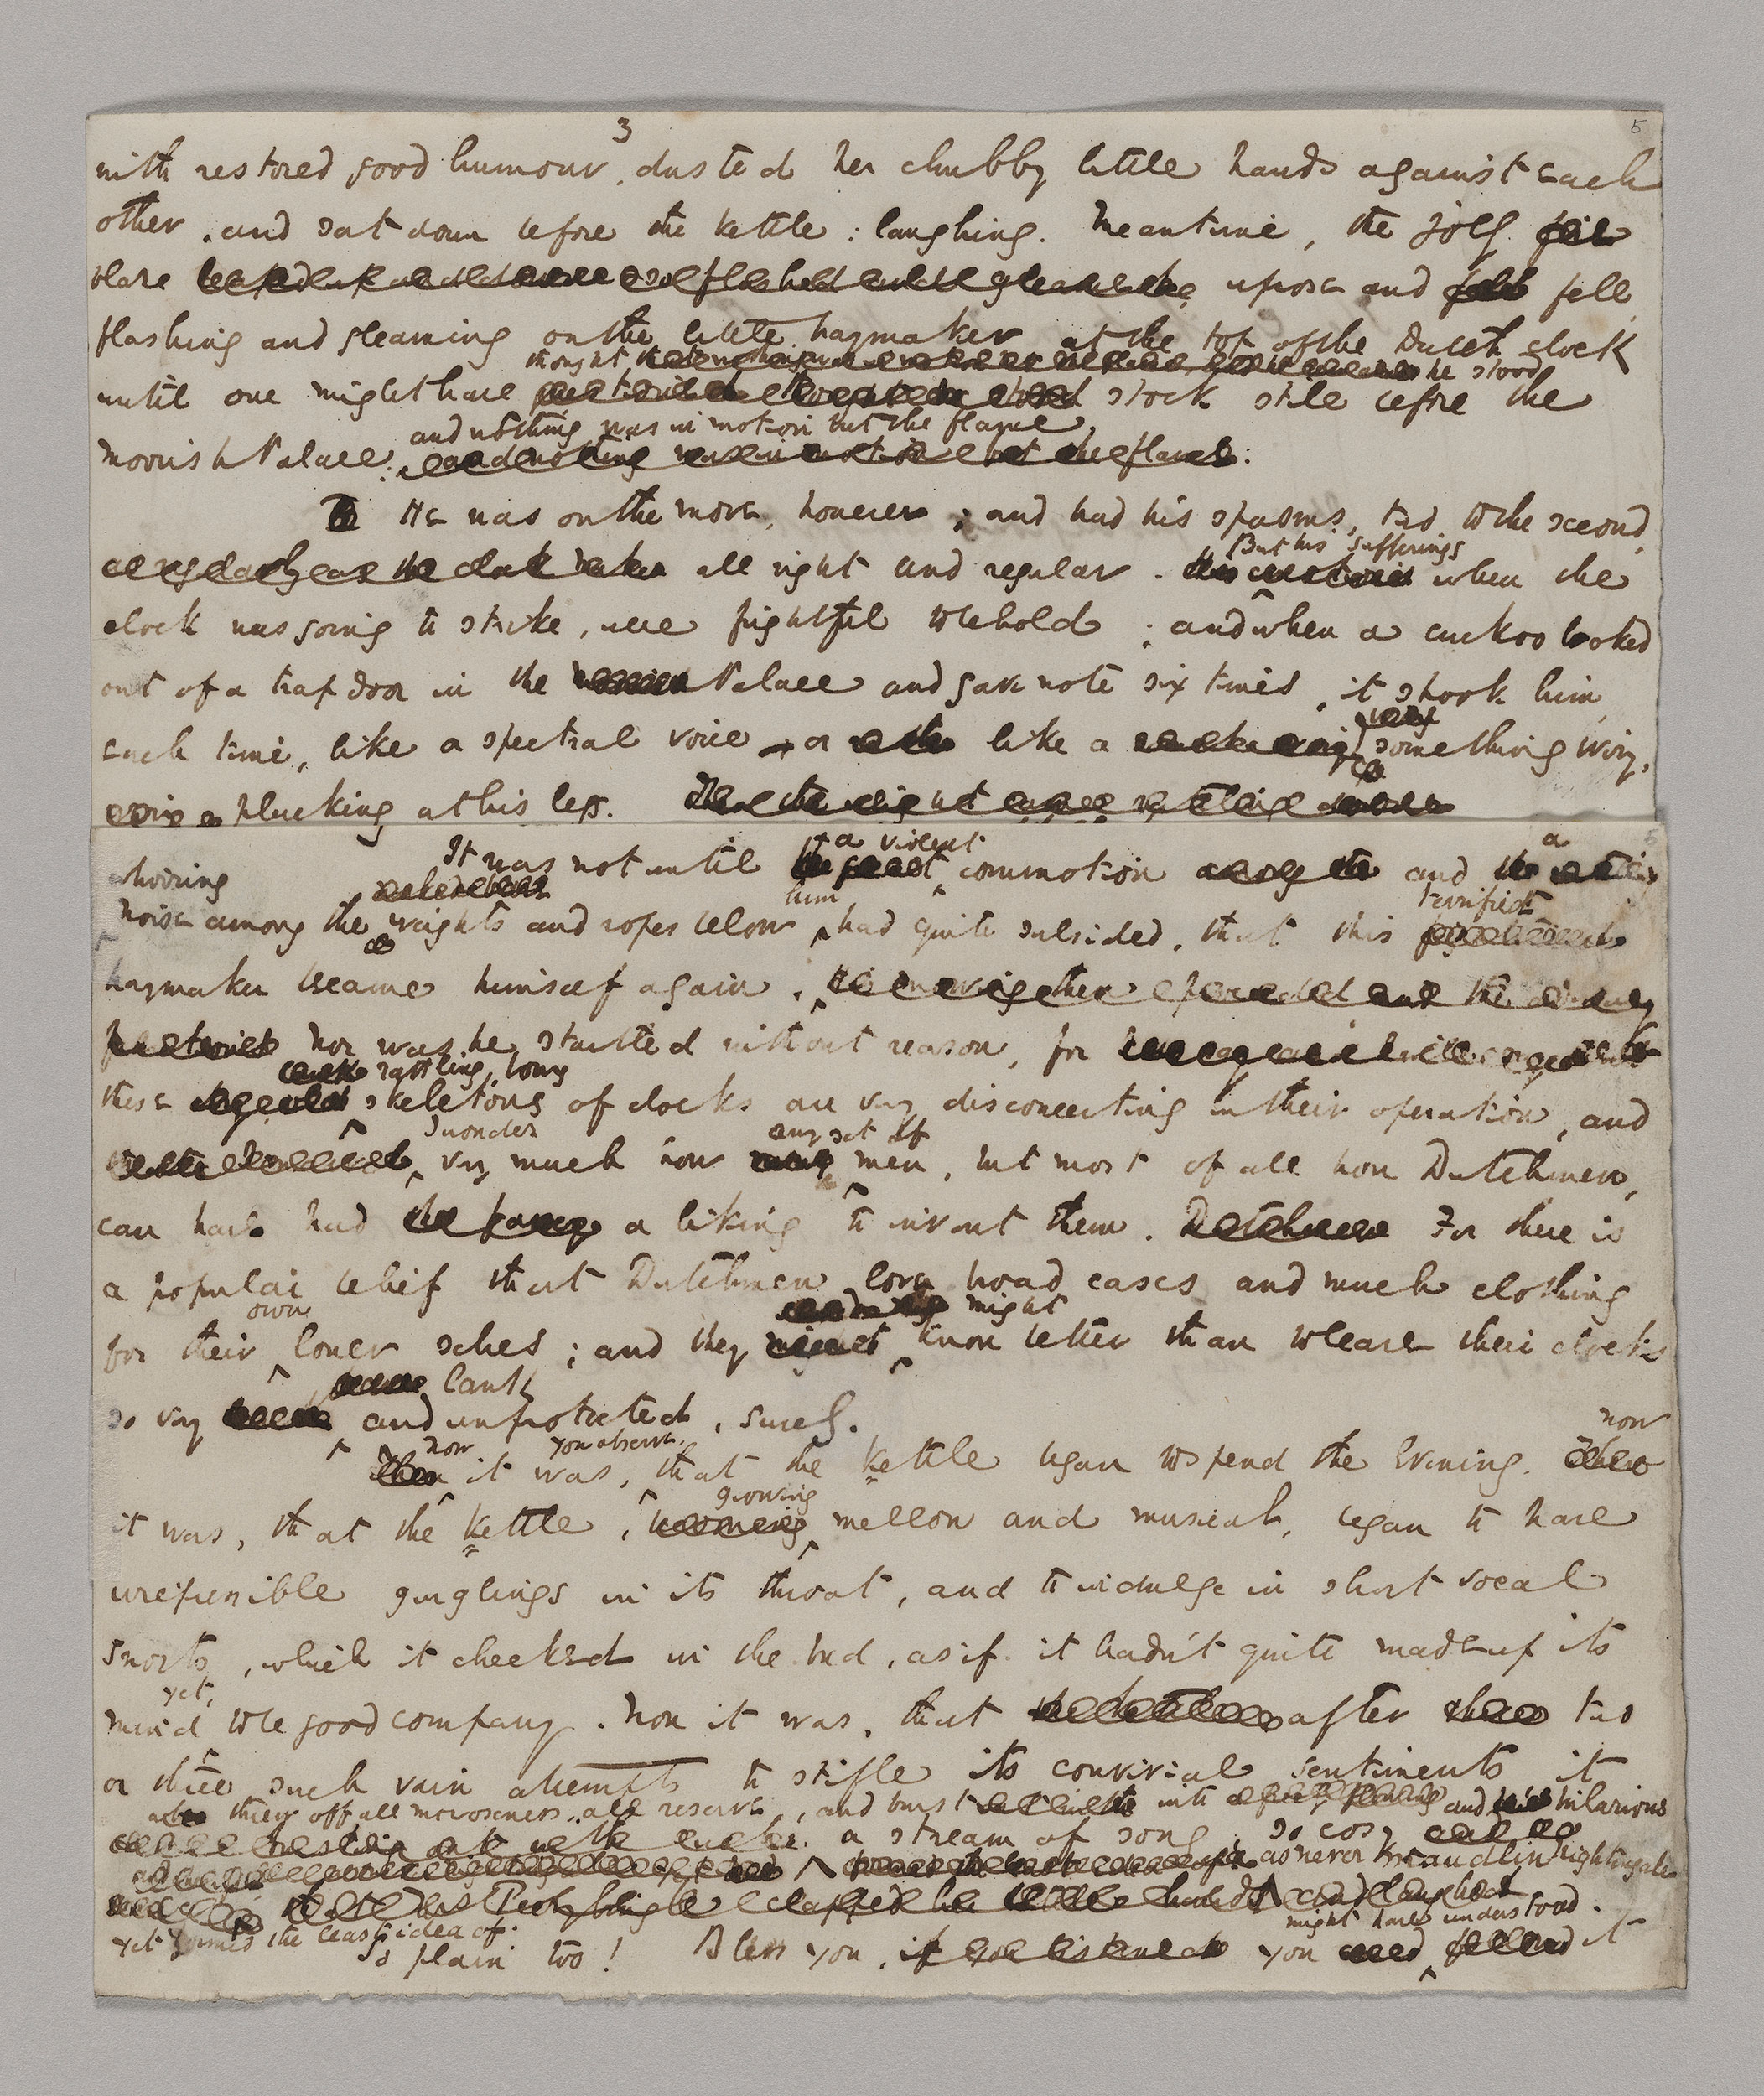 3
5
with restored good humour, dusted her chubby little hands against each
other, and sat down before the kettle: laughing. Meantime, the jolly
blaze uprose and fell,
flashing and gleaming on the little haymaker at the top of the Dutch clock
thought he stood
until one might have stock still before the
and nothing was in motion but the flame.
Moorish Palace,
and nothing was in motion but the flame:
He was on the move, however; and had his spasms, two to the second,
all right and regular. But his sufferings when the
clock was going to strike, were frightful to behold; and when a cuckoo looked
out of a trap door in the Palace and gave note six times, it shook him,
each time, like a spectral voice – or like a something wiry,
plucking at his legs.
It was not until a violent commotion and a
whirring
noise among the weights and ropes below him had quite subsided, that this terrified
haymaker became himself again.
nor was he startled without reason, for
these rattling, bony skeletons of clocks are very disconcerting in their operation, and
I wonder very much how any set of men, but most of all how Dutchmen,
can have had a liking to invent them. For there is
a popular belief that Dutchmen love broad cases and much clothing
for their own lower selves; and they might know better than to leave their clocks
so very lank and unprotected, surely.
Now it was, you observe, that the kettle began to spend the Evening. Now
it was, that the kettle, growing mellow and musical, began to have
irrepressible gurglings in its throat, and to indulge in short vocal
snorts, which it checked in the bud, as if it hadn't quite made up its
mind yet, to be good company. Now it was, that after two
or three such vain attempts to stifle its convivial sentiments it
threw off all moroseness, all reserve, and burst into
a stream of song so cosy and hilarious
as never maudlin nightingale
yet formed the least idea of.
So plain too! Bless you, you might have understood it